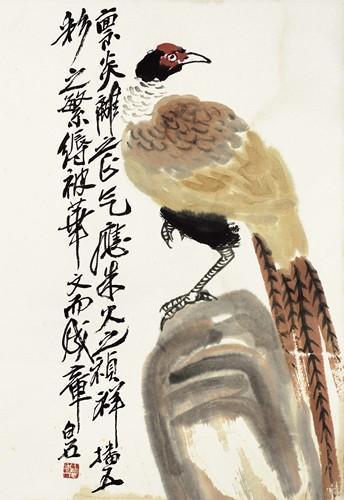 禀炎離之正气應朱火之禎祥播五
彩之繁縟被華文而成章 白石